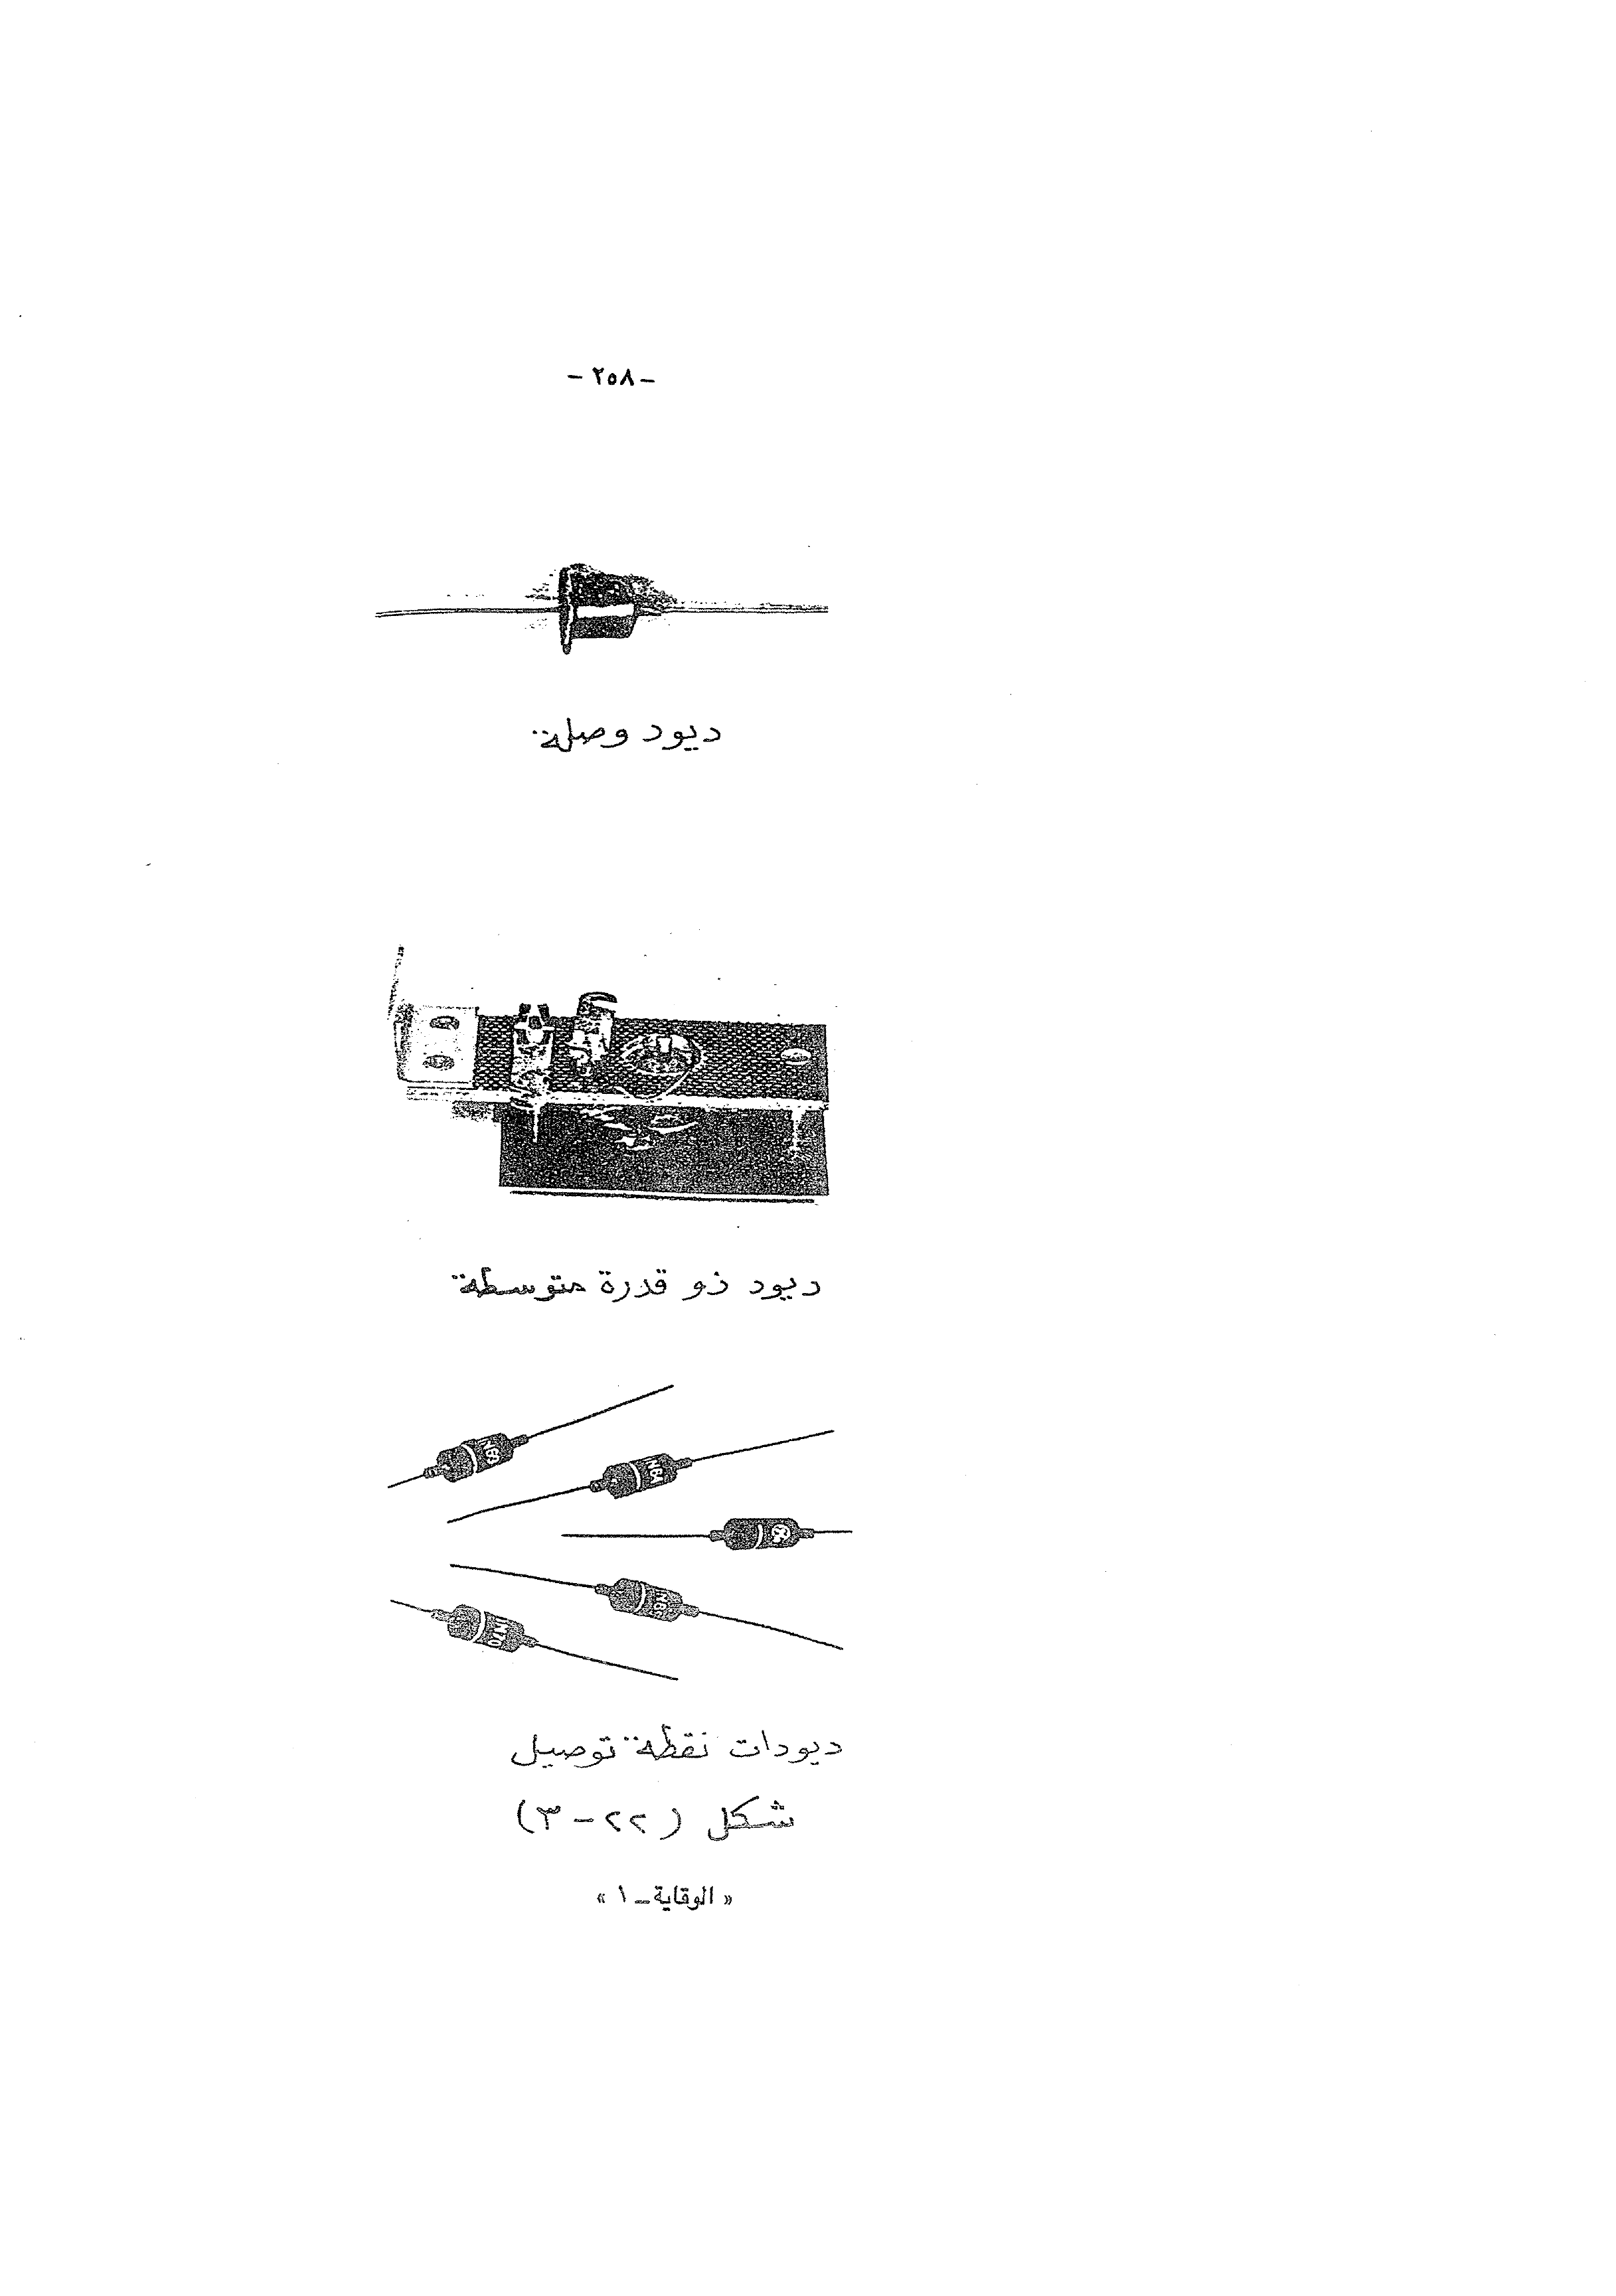 - ٢٥٨ -
ديود وصلة
ديود ذو قدرة متوسطة
ديودات نقطة توصيل
شكل (٢٢-٣)
« الوقاية - ١ »